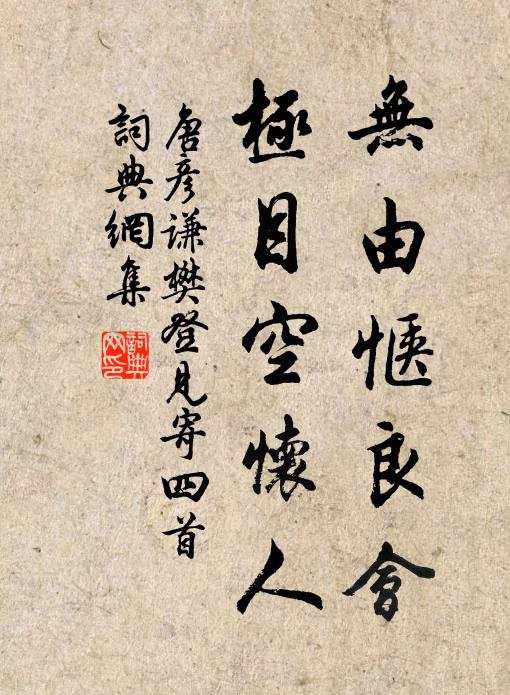 無由愜良會
極目空懷人
唐彥謙樊登見寄四首
詞典網集
詞典網印